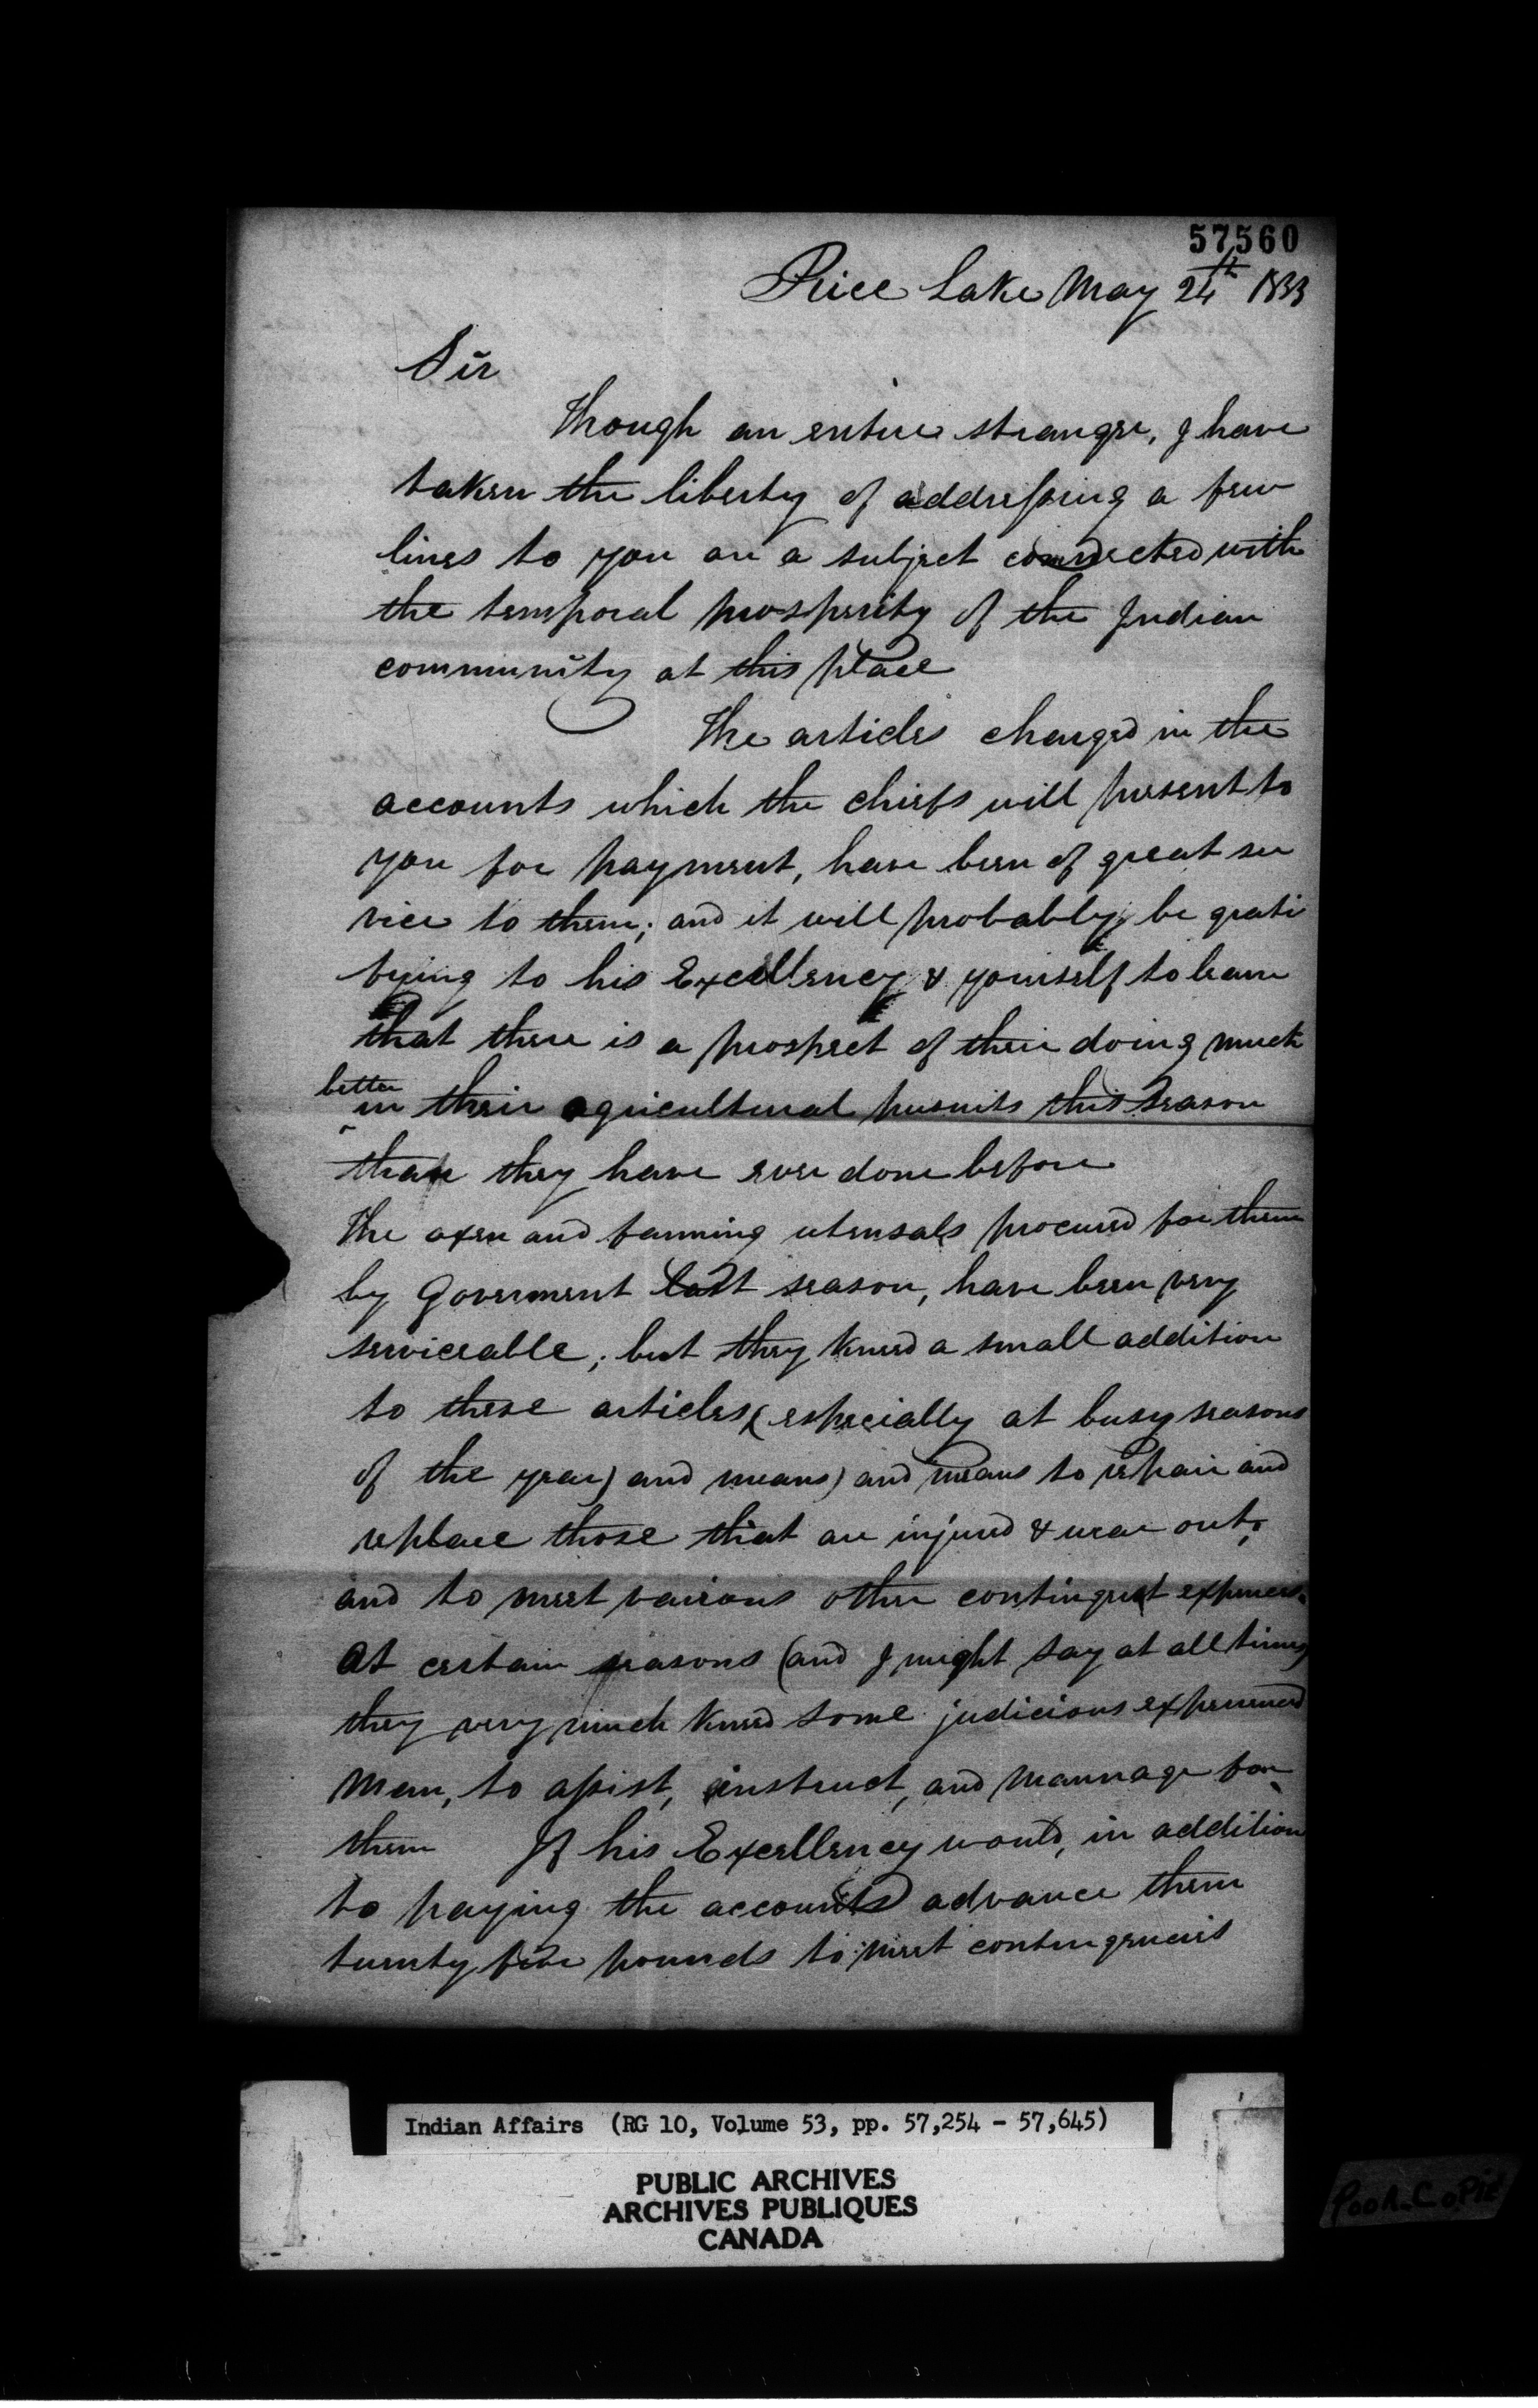 57560
Rice Lake May 24th 1833
Sir
Though an entire stranger, I have
taken the liberty of addressing a few
lines to you on a subject connected with
the temporal prosperity of the Indian
community at this place
The articles charged in the
accounts which the chiefs will present to
you for payment, have been of great ser
vice to them; and it will probably be grati
fying to his Excellency & yourself to learn
that there is a prospect of their doing much
better
in their agricultural pursuits this season
than they have ever done before
The oxen and farming utensals procured for them
by Goverment last season, have been very
serviceable; but they kneed a small addition
to these articles (especially at busy seasons
of the year) and means) and means to repair and
replace those that are injured & wear out,
and to meet various other contingent expences.
At certain seasons (and I might say at all times)
they very much kneed some judicious experienced
man, to assist, instruct, and mannage for
them If his Excellency would, in addition
to paying the accounts advance them
twenty five pounds to meet contingencies
Indian Affairs (RG 10, Volume 53, pp. 57,254 - 57,645)
PUBLIC ARCHIVES
ARCHIVES PUBLIQUES
CANADA
POOR COPIE